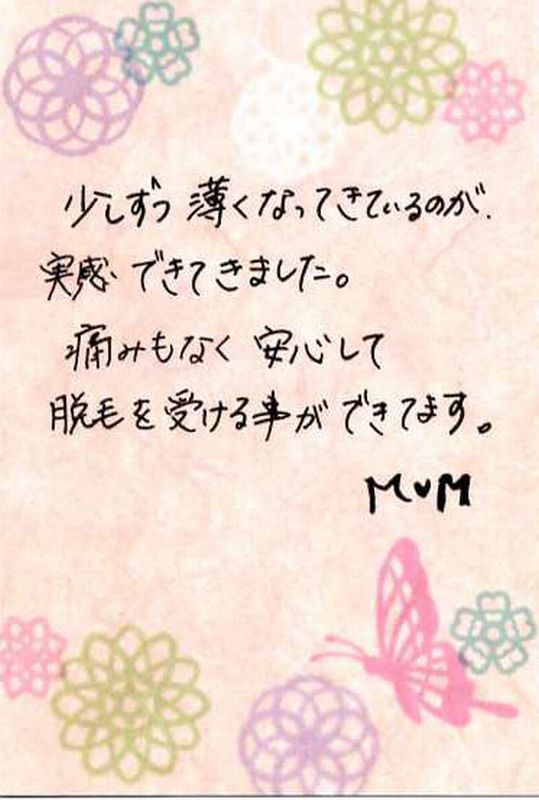 少しずつ薄くなってきているのが、
実感できてきました。
痛みもなく安心して
脱毛を受ける事ができてます。
M♥M